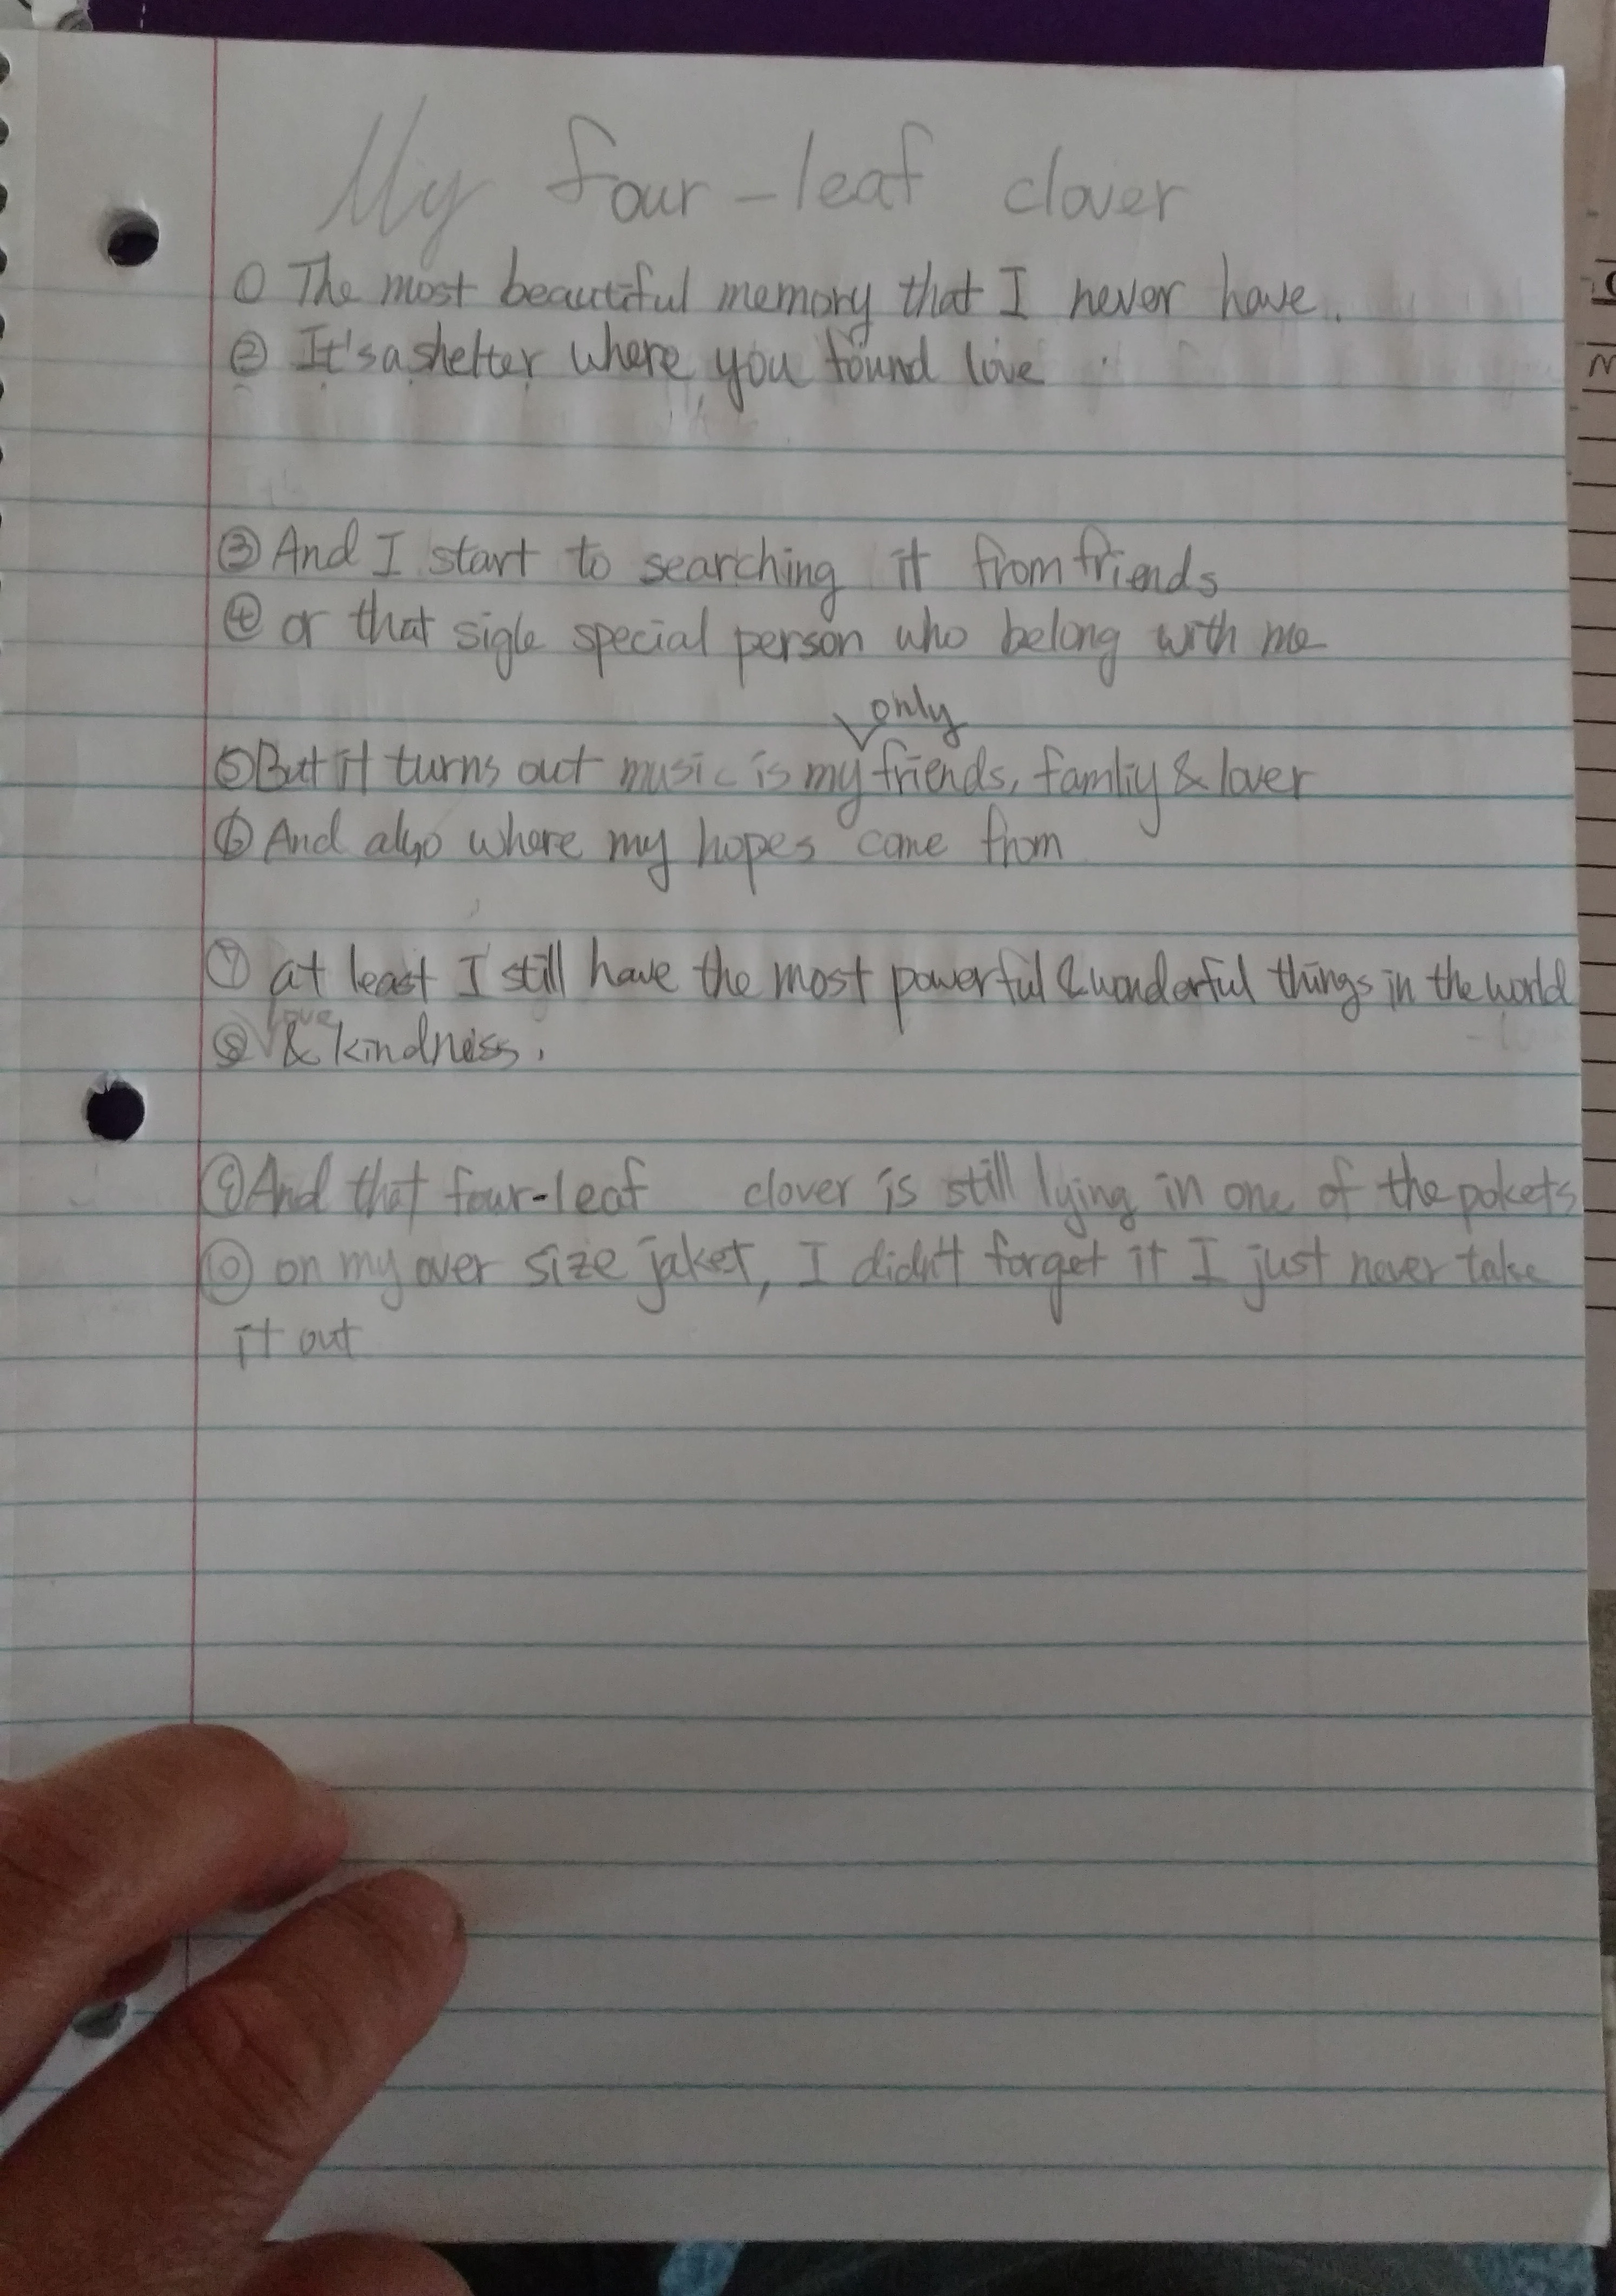 My four-leaf clover
① The most beautiful memory that I never have.
② It's a shelter where you found love
③ And I start to searching it from friends
④ or that sigle special person who belong with me
only
⑤ But it turns out music is my friends, famliy & lover
⑥ And also where my hopes come from
⑦ at least I still have the most powerful & wonderful things in the world
love
⑧ & kindness.
⑨ And that four-leaf clover is still lying in one of the pokets
⑩ on my over size jaket, I didn't forget it I just never take
it out